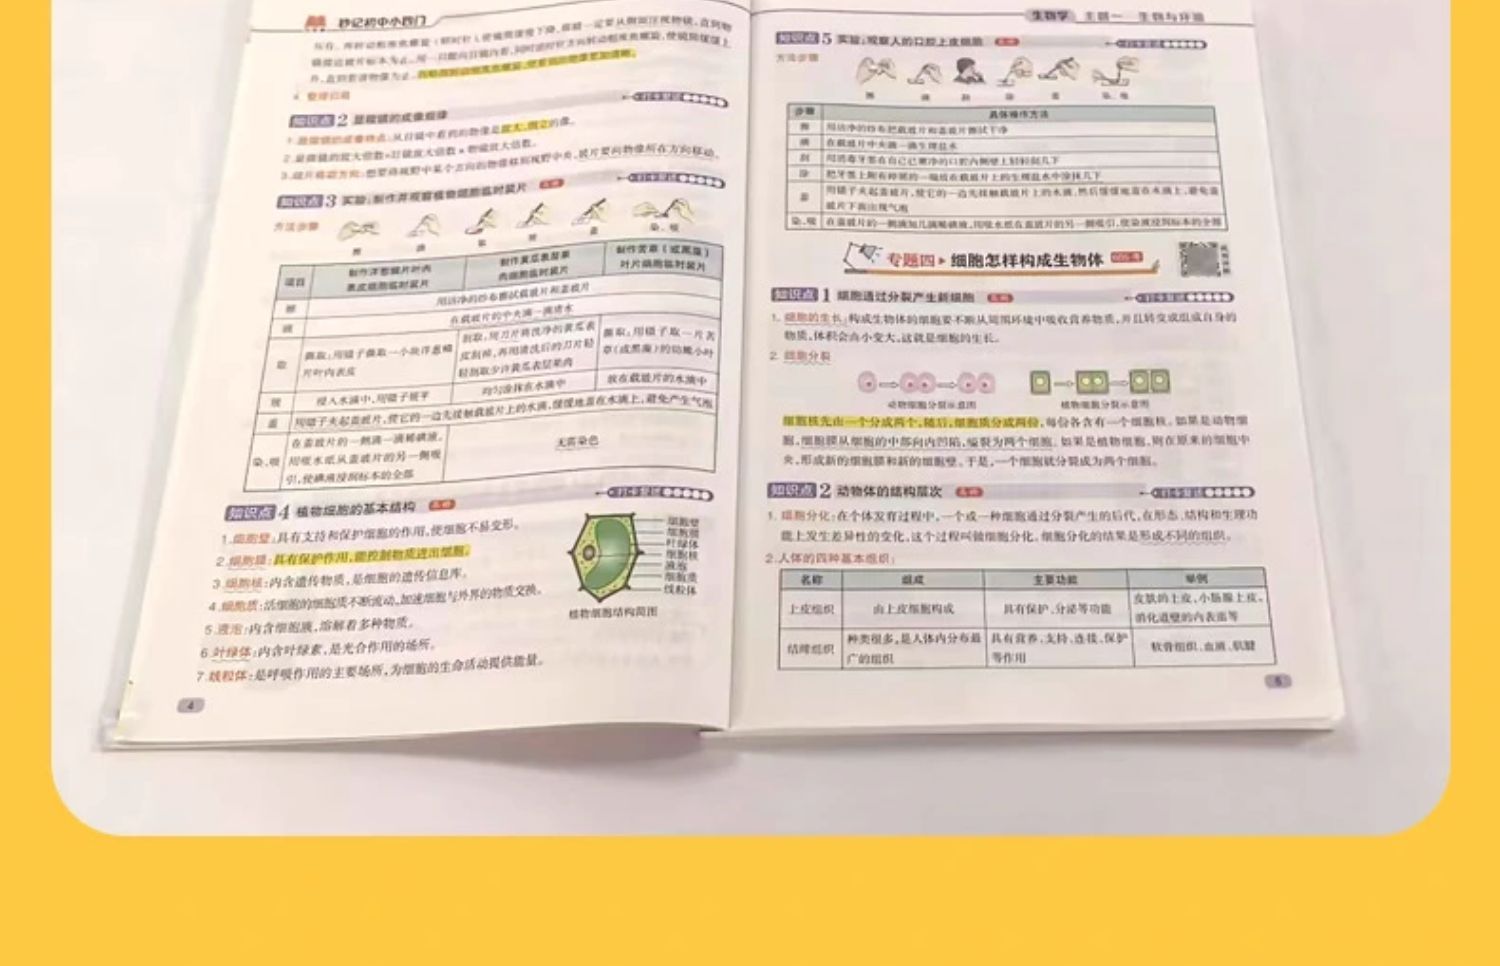 秒记初中小四门
知识点2 显微镜的成像规律
1.显微镜的成像特点:从目镜中看到的物像是放大、倒立的像。
2.显微镜的放大倍数=目镜放大倍数×物镜放大倍数。
3.玻片移动方向:想要将视野中某个方向的物像移到视野中央,玻片要向物像所在方向移动。
知识点3 实验:制作并观察植物细胞临时装片
方法步骤
染、吸
项目
制作洋葱鳞片叶内
表皮细胞临时装片
制作黄瓜表层果
肉细胞临时装片
叶片细胞临时装片
擦
用洁净的纱布擦拭载玻片和盖玻片
滴
在载玻片的中央滴一滴清水
取
撕取:用镊子撕取一小块洋葱鳞
片叶内表皮
刮取:用刀片将洗净的黄瓜表
皮刮掉,再用清洗后的刀片轻
轻刮取少许黄瓜表层果肉
撕取:用镊子取一片苦
草(或黑藻)的幼嫩小叶
展
浸入水滴中,用镊子展平
均匀涂抹在水滴中
放在载玻片的水滴中
盖
用镊子夹起盖玻片,使它的一边先接触载玻片上的水滴,缓缓地盖在水滴上,避免产生气泡
染、吸
在盖玻片的一侧滴一滴稀碘液,
用吸水纸从盖玻片的另一侧吸
引,使碘液浸到标本的全部
无需染色
知识点4 植物细胞的基本结构
1.细胞壁:具有支持和保护细胞的作用,使细胞不易变形。
2.细胞膜:具有保护作用,能控制物质进出细胞。
3.细胞核:内含遗传物质,是细胞的遗传信息库。
4.细胞质:活细胞的细胞质不断流动,加速细胞与外界的物质交换。
5.液泡:内含细胞液,溶解着多种物质。
6.叶绿体:内含叶绿素,是光合作用的场所。
7.线粒体:是呼吸作用的主要场所,为细胞的生命活动提供能量。
细胞壁
细胞膜
叶绿体
细胞核
液泡
细胞质
线粒体
植物细胞结构简图
4
生物学 主题一 生物与环境
知识点5 实验:观察人的口腔上皮细胞
方法步骤
染、吸
步骤
具体操作方法
擦
用洁净的纱布把载玻片和盖玻片擦拭干净
滴
在载玻片中央滴一滴生理盐水
刮
用消毒牙签在自己已漱净的口腔内侧壁上轻轻刮几下
涂
盖
用镊子夹起盖玻片,使它的一边先接触载玻片上的水滴,然后缓缓地盖在水滴上,避免盖
玻片下面出现气泡
染、吸
在盖玻片的一侧滴加几滴稀碘液,用吸水纸在盖玻片的另一侧吸引,使染液浸到标本的全部
专题四 细胞怎样构成生物体
知识点1 细胞通过分裂产生新细胞
1. 细胞的生长:构成生物体的细胞要不断从周围环境中吸收营养物质,并且转变成组成自身的
物质,体积会由小变大,这就是细胞的生长。
2. 细胞分裂
动物细胞分裂示意图
植物细胞分裂示意图
细胞核先由一个分成两个,随后,细胞质分成两份,每份各含有一个细胞核。如果是动物细
胞,细胞膜从细胞的中部向内凹陷,缢裂为两个细胞。如果是植物细胞,则在原来的细胞中
央,形成新的细胞膜和新的细胞壁。于是,一个细胞就分裂成为两个细胞。
知识点2 动物体的结构层次
1. 细胞分化:在个体发育过程中,一个或一种细胞通过分裂产生的后代,在形态、结构和生理功
能上发生差异性的变化,这个过程叫做细胞分化。细胞分化的结果是形成不同的组织。
2.人体的四种基本组织:
名称
组成
主要功能
举例
上皮组织
由上皮细胞构成
具有保护、分泌等功能
皮肤的上皮、小肠腺上皮、
消化道壁的内表面等
结缔组织
种类很多,是人体内分布最
广的组织
具有营养、支持、连接、保护
等作用
软骨组织、血液、肌腱
5